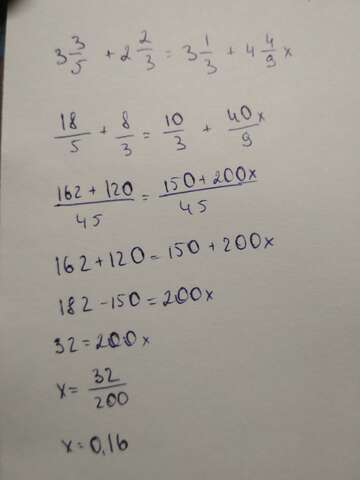 3 3/5 + 2 2/3 = 3 1/3 + 4 4/9 x
18/5 + 8/3 = 10/3 + 40x/9
162 + 120/45 = 150 + 200x/45
162 + 120 = 150 + 200x
182 - 150 = 200x
32 = 200x
x = 32/200
x = 0,16